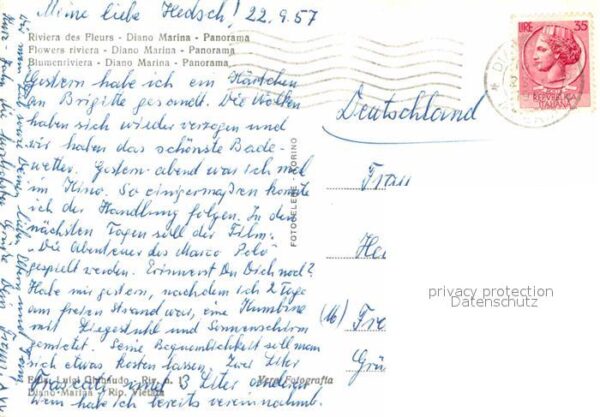 Meine liebe Hedsch! 22.9.57
Riviera des Fleurs - Diano Marina - Panorama
Flowers riviera - Diano Marina - Panorama
Blumenriviera - Diano Marina - Panorama
Gestern habe ich ein Kärtchen
an Brigitte gesandt. Die Wolken
haben sich wieder verzogen und
wir haben das schönste Bade-
wetter. Gestern abend war ich mal
im Kino. So einigermaßen konnte
ich der Handlung folgen. In den
nächsten Tagen soll der Film:
"Die Abenteuer des Marco Polo"
gespielt werden. Erinnerst Du Dich noch?
Habe mir gestern, nachdem ich 2 Tage
am freien Strand war, eine Kombine
mit Liegestuhl und Sonnenschirm
gemietet. Seine Bequemlichkeit soll man
sich etwas kosten lassen. Zwei Liter
Frascati und 3 Liter anderen
wein habe ich bereits vereinnahmt.
Ediz. Luigi Ghibaudo - Riv. n. 1
Diano Marina - Rip. Vietata
Vera Fotografia
FOTOCELERE - TORINO
Deutschland
Frau
He
(16) Fre
Grü
LIRE 35
REPVBBLICA
ITALIANA
privacy protection
Datenschutz